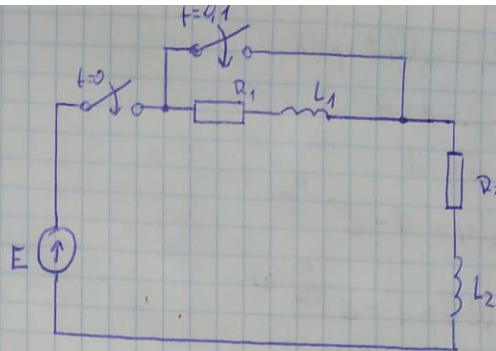 t=0,1
t=0
R₁
L₁
R₂
E
L₂